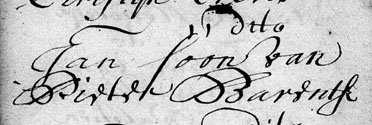 11 dtto
Jan soon van
Pieter Barentsz